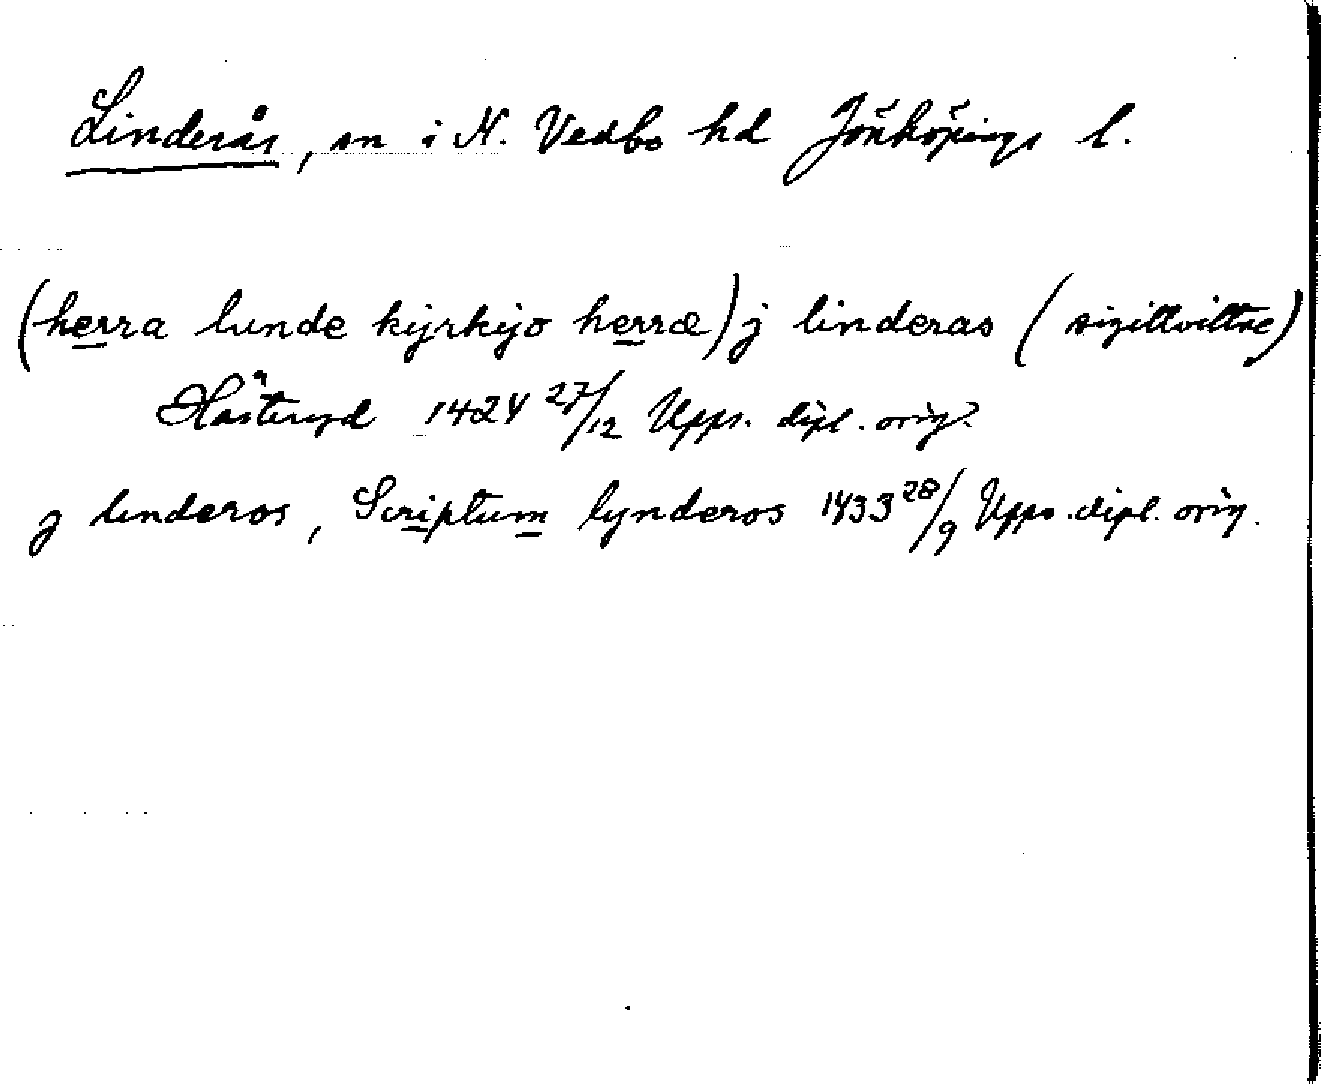 Linderås, sn i N. Vedbo hd Jönköpings l.
(herra lunde kyrkyo herræ) j linderas (sigillvittne)
Hästeryd 1424 27/12 Upps. dipl. orig.
j linderos, Scriptum lynderos 1433 28/9 Upps. dipl. orig.